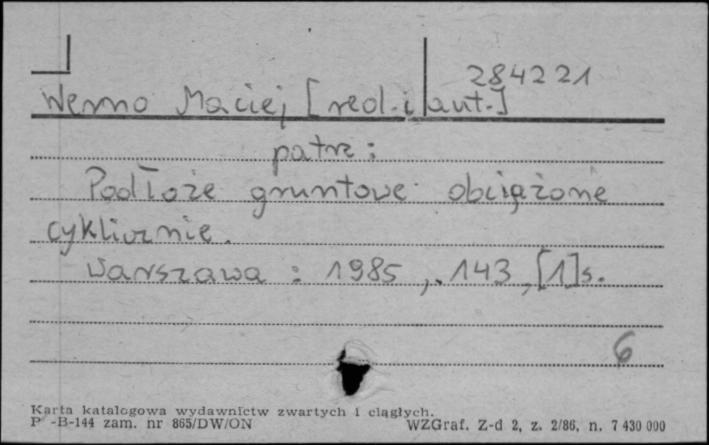 284221
Werno Maciej [red. i aut.]
patrz:
Podłoże gruntowe obciążone
cyklicznie.
Warszawa : 1985, 143, [1] s.
6
Karta katalogowa wydawnictw zwartych i ciągłych.
P -B-144 zam. nr 865/DW/ON WZGraf. Z-d 2, z. 2/86, n. 7 430 000